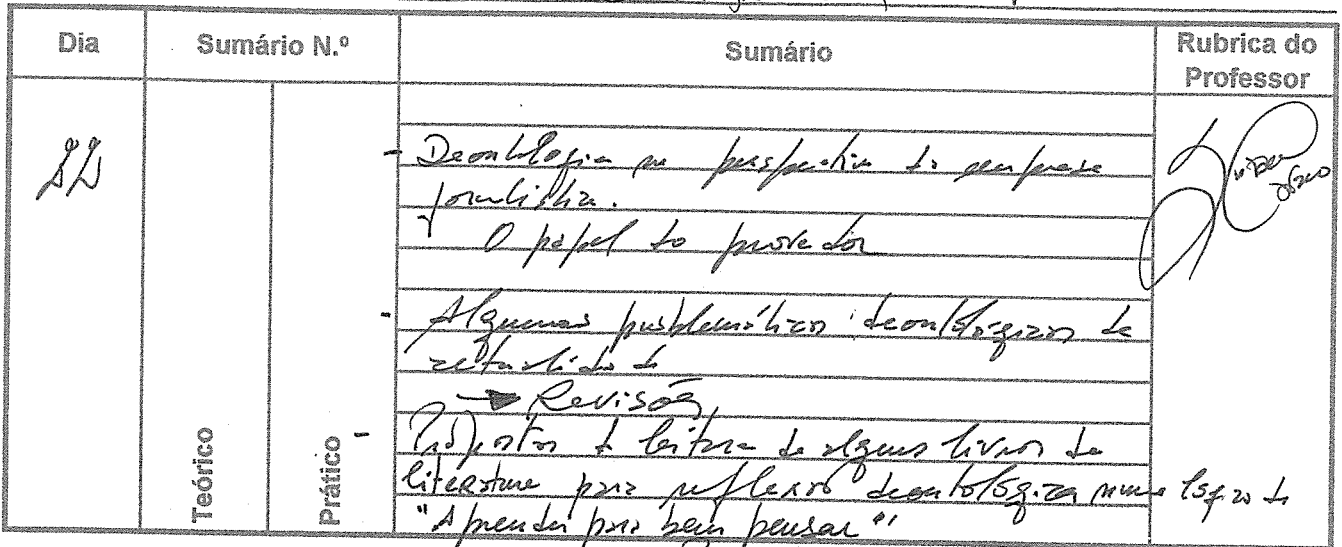 Dia Sumário N.º Sumário Rubrica do Professor
22
- Deontologia na perspectiva da empresa
jornalística.
O papel do provedor
- Algumas problemáticas deontológicas da
actualidade
→ Revisões
- Propostas de leitura de alguns livros de
literatura para reflexão deontológica numa lógica de
"Aprender para bem pensar"
Teórico
Prático